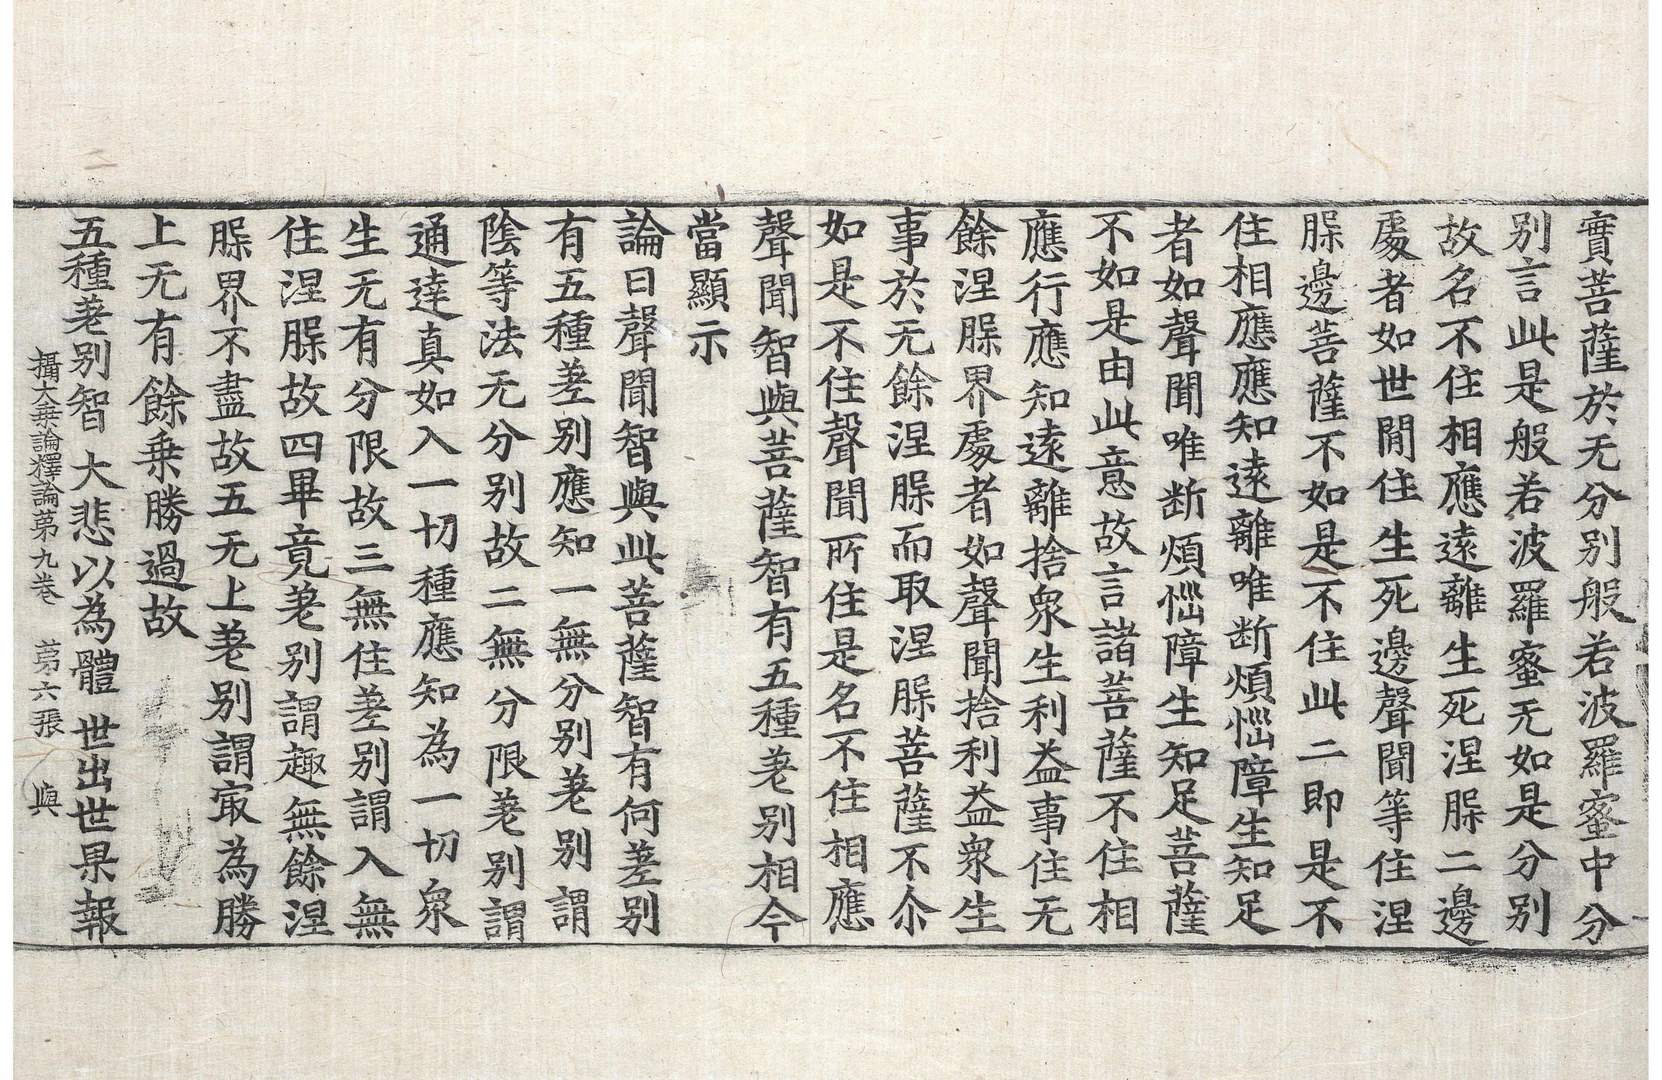 實菩薩於无分别般若波羅蜜中分
别言此是般若波羅蜜无如是分别
故名不住相應遠離生死涅槃二邊
處者如世間住生死邊聲聞等住涅
槃邊菩薩不如是不住此二即是不
住相應應知遠離唯断煩惱障生知足
者如聲聞唯断煩惱障生知足菩薩
不如是由此意故言諸菩薩不住相
應行應知遠離捨衆生利益事住无
餘涅槃界處者如聲聞捨利益衆生
事於无餘涅槃而取涅槃菩薩不尒
如是不住聲聞所住是名不住相應
聲聞智與菩薩智有五種差别相今
當顯示
論曰聲聞智與此菩薩智有何差别
有五種差别應知一無分别差别謂
陰等法无分别故二無分限差别謂
通達真如入一切種應知為一切衆
生无有分限故三無住差别謂入無
住涅槃故四畢竟差别謂趣無餘涅
槃界不盡故五无上差别謂㝡為勝
上无有餘乗勝過故
五種差别智 大悲以為體 世出世果報
攝大乗論釋論第九卷 第六張 與